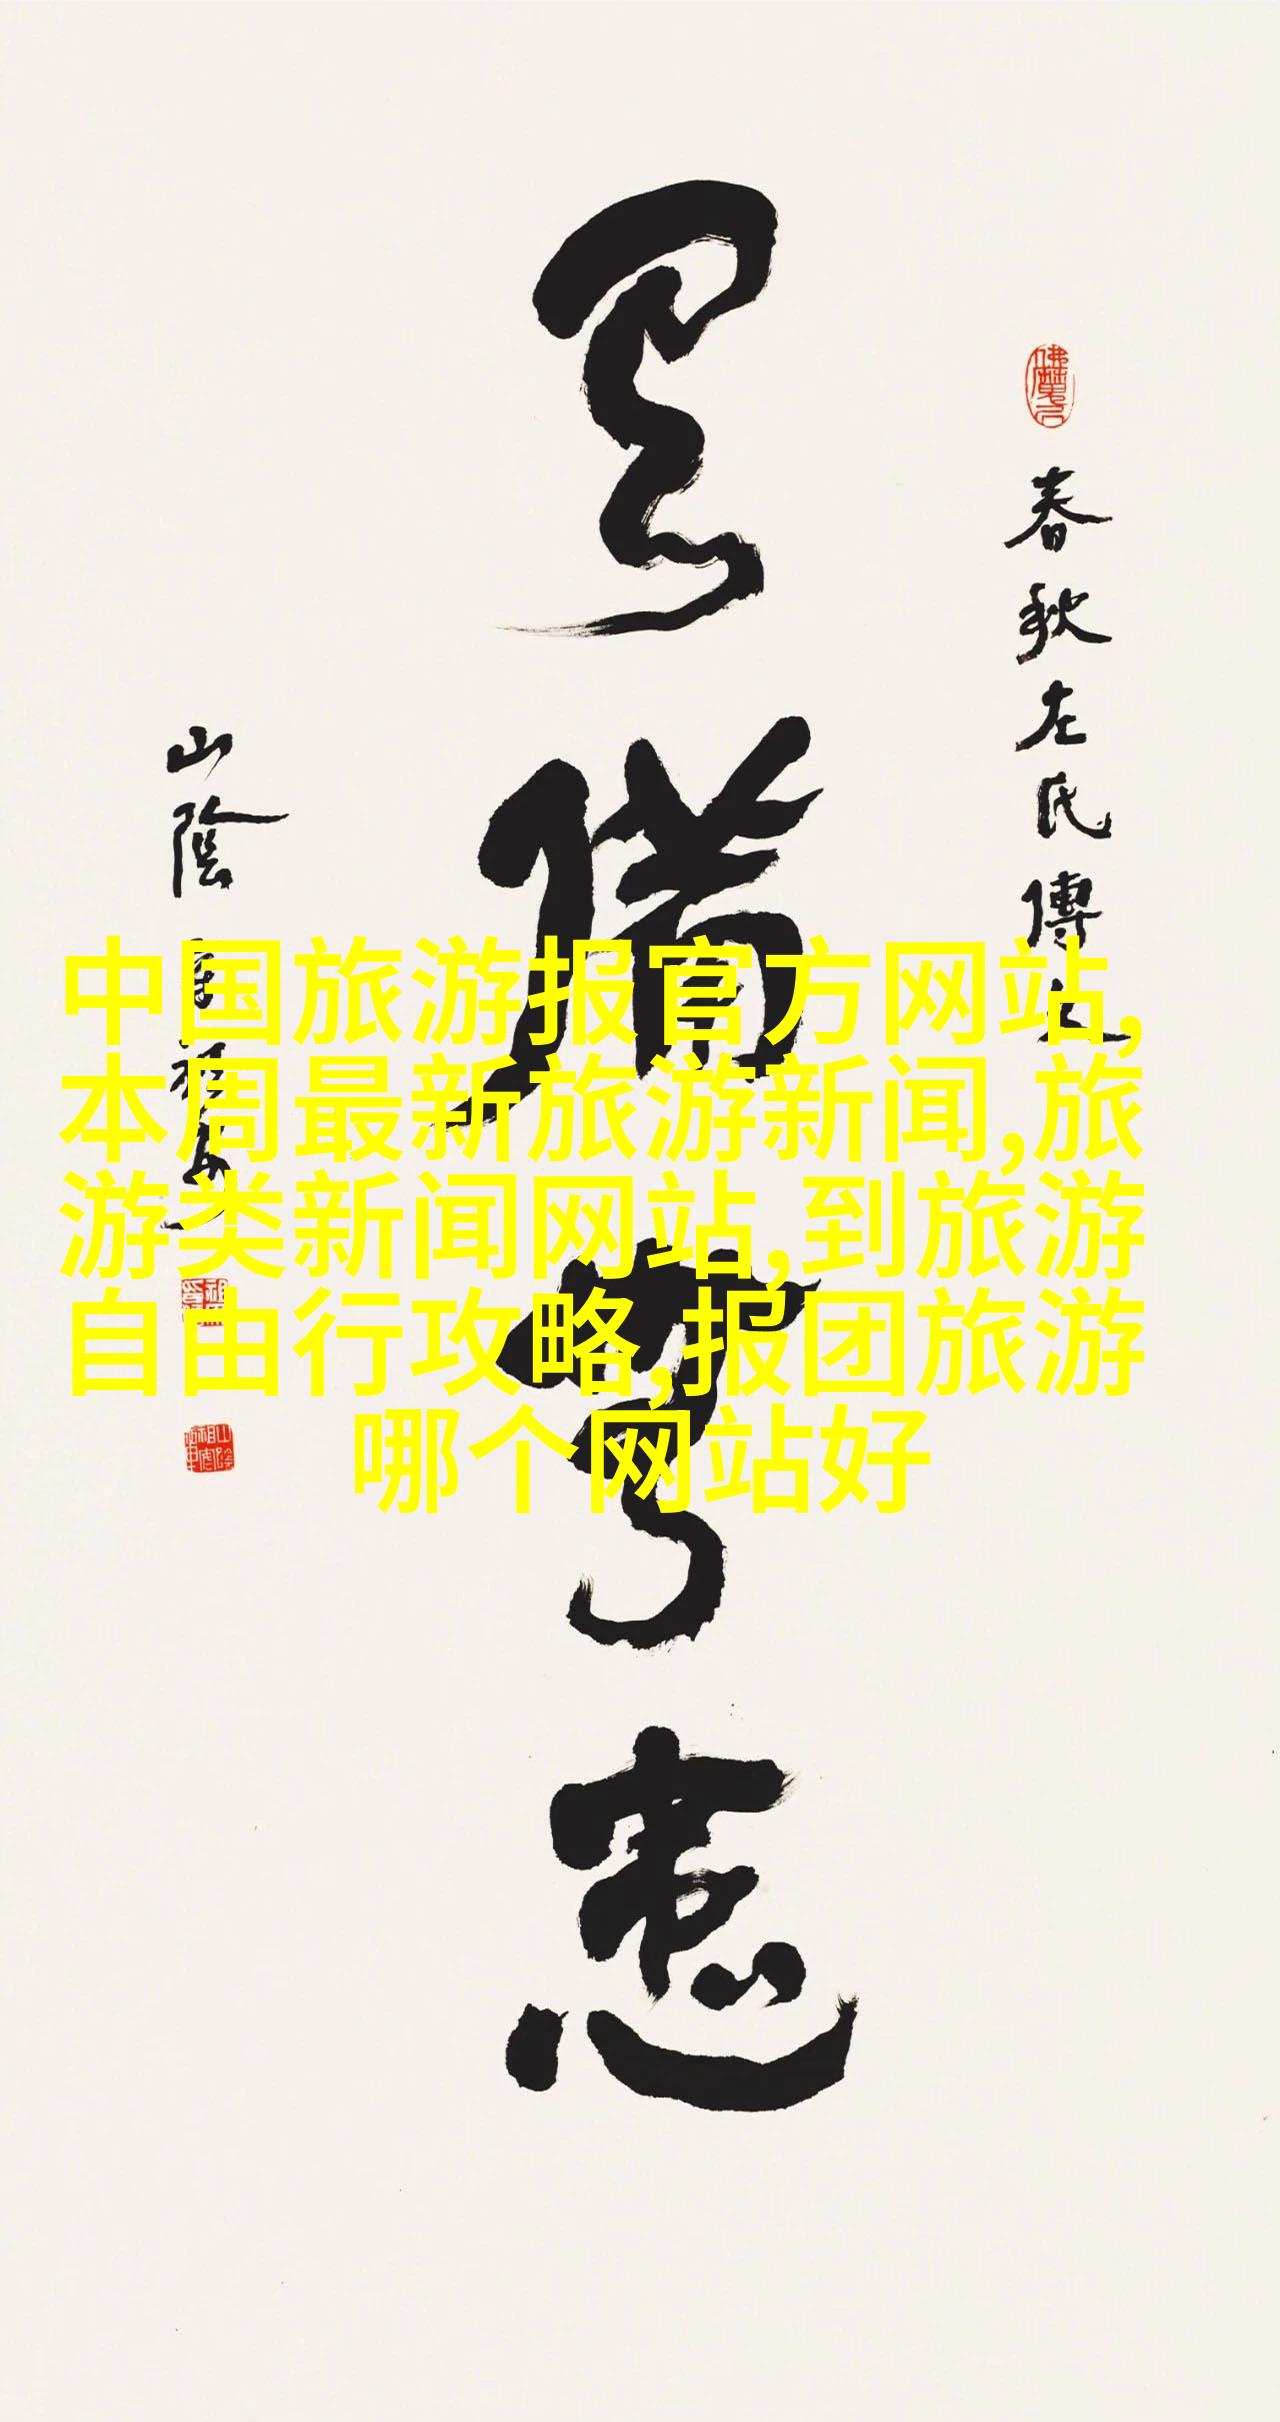 春秋左氏傳
有備無患
山陰
中国旅游报官方网站,
本周最新旅游新闻,旅
游类新闻网站,到旅游
自由行攻略,报团旅游
哪个网站好